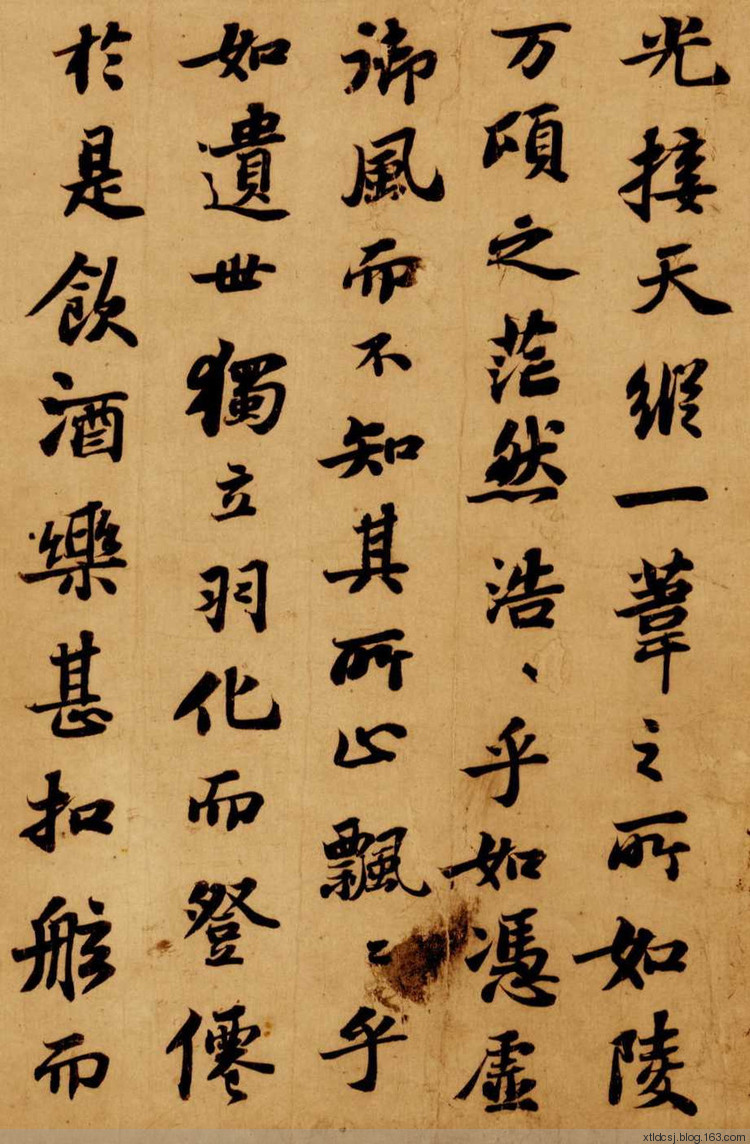 光接天縱一葦之所如陵
万頃之茫然浩〻乎如憑虚
御風而不知其所止飄〻乎
如遺世獨立羽化而登僊
於是飲酒樂甚扣舷而
xtldcsj.blog.163.com